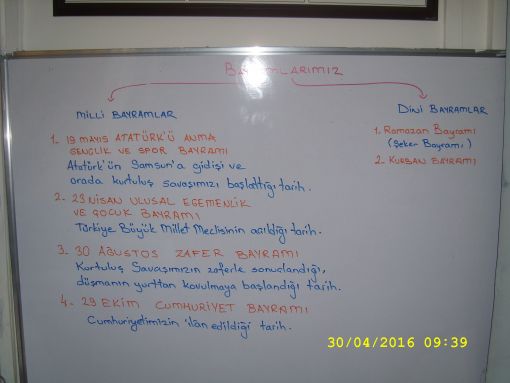 BAYRAMLARIMIZ
MİLLİ BAYRAMLAR
1. 19 MAYIS ATATÜRK'Ü ANMA
GENÇLİK VE SPOR BAYRAMI
Atatürk'ün Samsun'a gidişi ve
orada kurtuluş savaşımızı başlattığı tarih.
2. 23 NİSAN ULUSAL EGEMENLİK
VE ÇOCUK BAYRAMI
Türkiye Büyük Millet Meclisinin açıldığı tarih.
3. 30 AĞUSTOS ZAFER BAYRAMI
Kurtuluş Savaşımızın zaferle sonuçlandığı,
düşmanın yurttan kovulmaya başlandığı tarih.
4. 29 EKİM CUMHURİYET BAYRAMI
Cumhuriyetimizin ilân edildiği tarih.
DİNİ BAYRAMLAR
1. Ramazan Bayramı
(Şeker Bayramı)
2. KURBAN BAYRAMI
30/04/2016 09:39